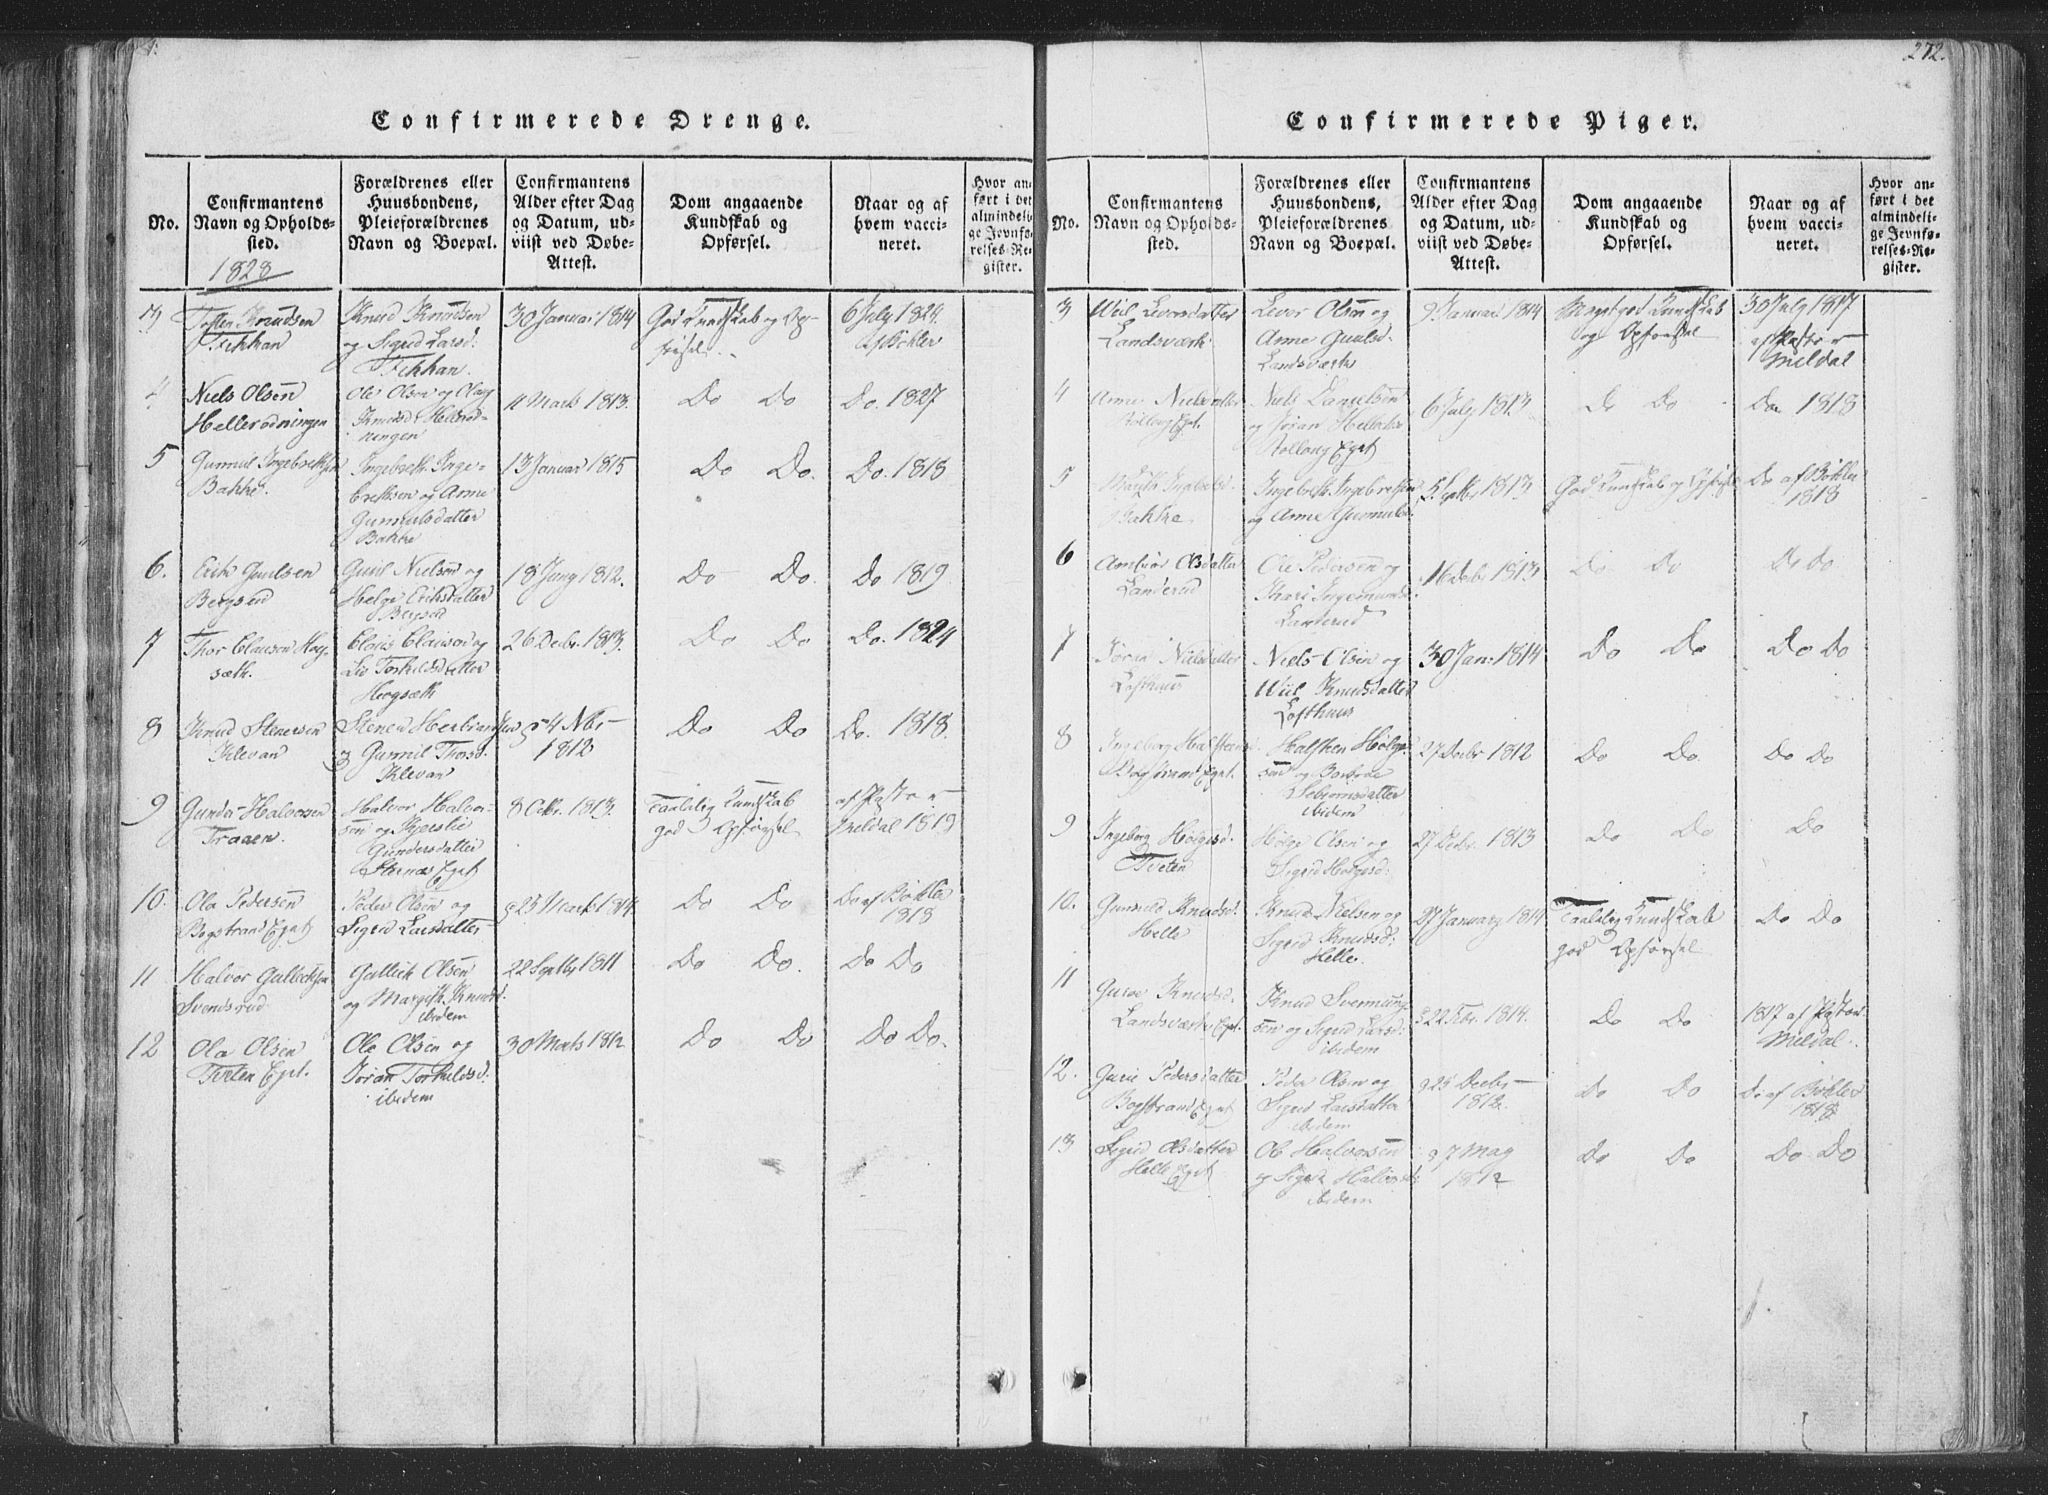 272.
Confirmerede Drenge.
No.
Confirmantens
Navn og Opholds-
sted.
1828
Forældrenes eller
Huusbondens,
Pleieforældrenes
Navn og Boepæl.
Confirmantens
Alder efter Dag
og Datum, ud-
viist ved Døbe-
Attest.
Dom angaaende
Kundskab og
Opførsel.
Naar og af
hvem vacci-
neret.
Hvor an-
ført i det
almindeli-
ge Jevnfø-
relses-Re-
gister.
3
Knudsen
Knud Knudsen
og Sigrid Larsd:
30 Januar 1814
God Kundskab og Op-
førsel.
6 July 1824
Bøhler
4
Niels Olsen
Hellerødningen
Ole Olsen og
Knudsd
11 Marts 1813.
Do Do
Do. 1827
5
Gunnul Ingebrethsen
Bakke.
Ingebreth Inge-
brethsen og Anne
Gunnulsdatter
Bakke
13 Januar 1815
Do Do.
Do. 1818
6.
Erik
Bergsed
Nielsen og
Helge Eriksdatter
Bergsed
18 Juny 1812.
Do Do.
Do 1819
7
Thor Clausen Hog-
sæth.
Claus Clausen og
Liv Torkildsdatter
Hogsæth
26 Decbr. 1813.
Do Do
Do. 1824
8
Knud Stenersen
Klevan
Stener Herbrandsen
og Gunnil Thorsd:
Klevan
4 Nbr
1812
Do Do
Do. 1818.
9
Gunder Halvorsen
Traaen.
Halvor Halvor-
sen og Kjerstie
Gundersdatter
8 Octbr. 1813.
Taalelig Kundskab
god Opførsel
af Pastor
Meldal 1819
10.
Ole Pedersen
Bogstrand Eget
Peder Olsen og
Sigrid Larsdatter
25 Marts 1814.
Do Do
Do af Bøhler
1818
11
Halvor Gulleckson
Svendsrud
Gullick Olsen
og Margith Knudsd.
ibidem
22 Septbr 1811
Do Do.
Do Do
12
Ole Olsen
Tveten Eget.
Ole Olsen og
Jøran Torkildsd:
ibidem
30 Marts 1812
Do Do
Do Do.
Confirmerede Piger.
No.
Confirmantens
Navn og Opholds-
sted.
Forældrenes eller
Huusbondens,
Pleieforældrenes
Navn og Boepæl.
Confirmantens
Alder efter Dag
og Datum, ud-
viist ved Døbe-
Attest.
Dom angaaende
Kundskab og
Opførsel.
Naar og af
hvem vacci-
neret.
Hvor an-
ført i det
almindeli-
ge Jevnfø-
relses-Re-
gister.
3
Wiil Leversdatter
Landsværk
Lever Olsen og
Anne
Landsværk
9 Januar 1814
Meget god Kundskab
og Opførsel
30 July 1817
af Pastor
Meldal
4
Anne Nielsdatter
Eget.
Niels Danielsen
og Jøran
Eget
6 July 1813
Do Do
Do 1818
5
Bakke
Ingebreth Ingebrethsen
og Anne Gunnulsd:
5 Septbr 1813
God Kundskab og Opførsel
Do af Bøhler
1818
6
Olsdatter
Landerud
Ole Pedersen og
Kari Ingemundsd:
Landerud
16 Decbr 1813
Do Do
Do Do
7
Jøran Nielsdatter
Lofthuus
Niels Olsen og
Wiil Knudsdatter
Lofthuus
30 Jan: 1814
Do Do
Do Do
8
Ingeborg Halstensd
Bogstrand Eget.
Halsten Helge-
sen og Barbroe
ibidem
27 Decbr 1812
Do Do.
Do Do
9
Ingeborg Helgesd.
Tveten
Helge Olsen og
Sigrid Helgesd:
27 Decbr. 1813
Do Do
Do
10.
Gunnild Knudsd.
Helle
Knud Nielsen og
Sigrid Knudsd:
Helle.
27 January 1814.
Taalelig Kundskab
god Opførsel
Do Do
11
Guroe Knudsd.
Landsværk Eget.
Knud Svenung-
sen og Sigrid Larsd:
ibidem
22 Febr. 1814.
Do Do
1817 af Pastor
Meldal.
12.
Gurie Pedersdatter
Bogstrand Eget
Peder Olsen og
Sigrid Larsdatter
ibidem
25 Decbr
1812.
Do Do
Do af Bøhler
1818.
13
Sigrid Olsdatter
Helle Eget
Ole Halvorsen
og Sigrid Halvorsd:
ibidem
7 May
1812
Do Do
Do Do